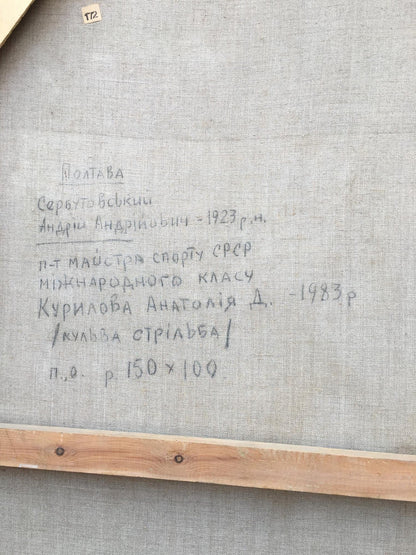 172
ПОЛТАВА
Сербутовський
Андрій Андрійович - 1923 р.н.
п-т майстра спорту СРСР
міжнародного класу
Курилова Анатолія Д. - 1983 р
/кульва стрільба/
п.,о. р 150 × 100